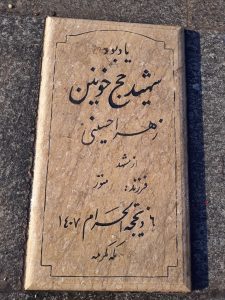 یادبود
شهید حج خونین
زهرا حسینی
از مشهد
فرزند: منور
۶ ذیحجه الحرام ۱۴۰۷
مکه مکرمه